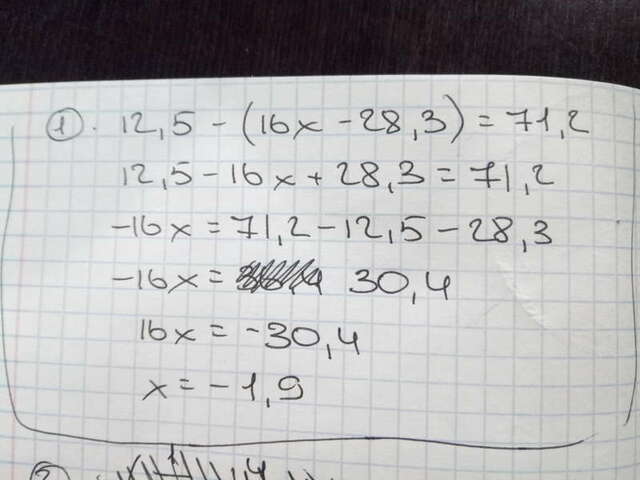 1. 12,5 - (16x - 28,3) = 71,2
12,5 - 16x + 28,3 = 71,2
-16x = 71,2 - 12,5 - 28,3
-16x = 30,4
16x = -30,4
x = -1,9